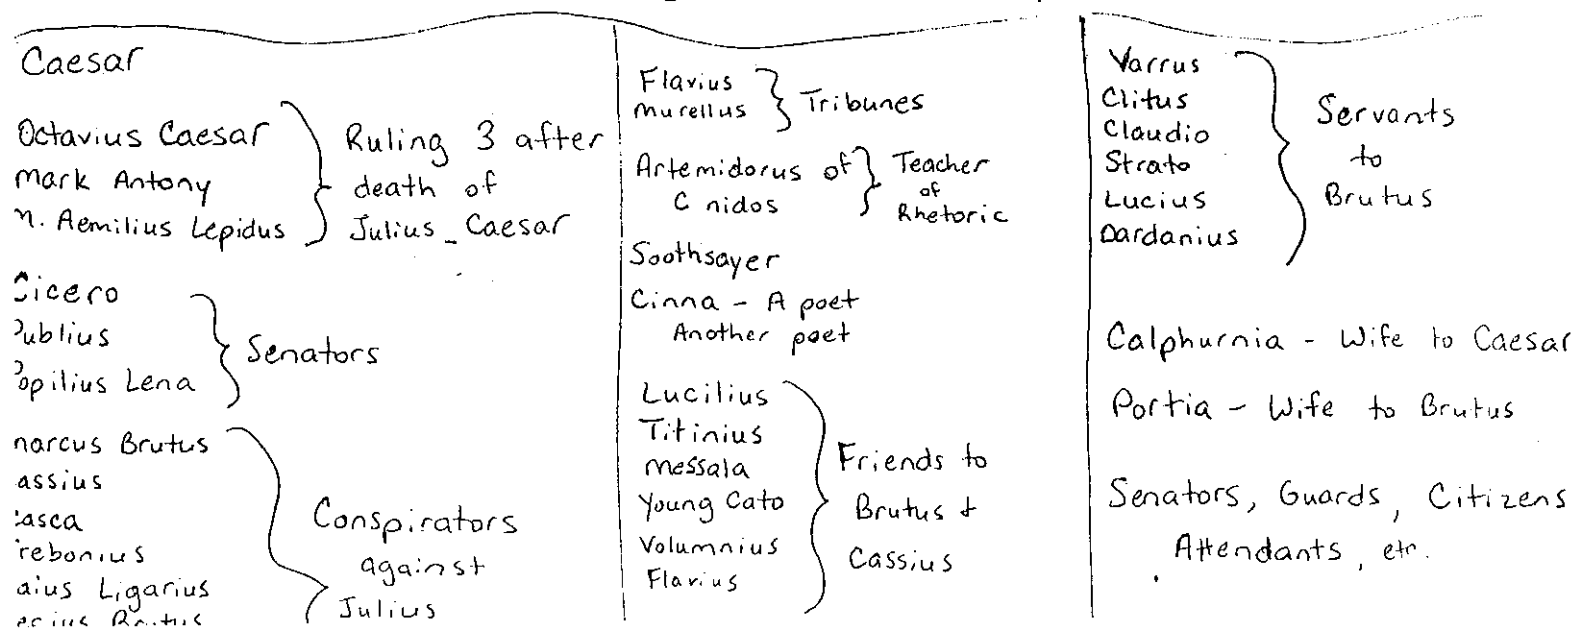 Caesar
Octavius Caesar
Mark Antony
M. Aemilius Lepidus
Ruling 3 after
death of
Julius Caesar
Cicero
Publius
Popilius Lena
Senators
marcus Brutus
assius
asca
rebonius
aius Ligarius
ecius Brutus
Conspirators
against
Julius
Flavius
Murellus
Tribunes
Artemidorus of
Cnidos
Teacher
of
Rhetoric
Soothsayer
Cinna - A poet
Another poet
Lucilius
Titinius
Messala
Young Cato
Volumnius
Flavius
Friends to
Brutus +
Cassius
Varrus
Clitus
Claudio
Strato
Lucius
Dardanius
Servants
to
Brutus
Calphurnia - Wife to Caesar
Portia - Wife to Brutus
Senators, Guards, Citizens
Attendants, etc.